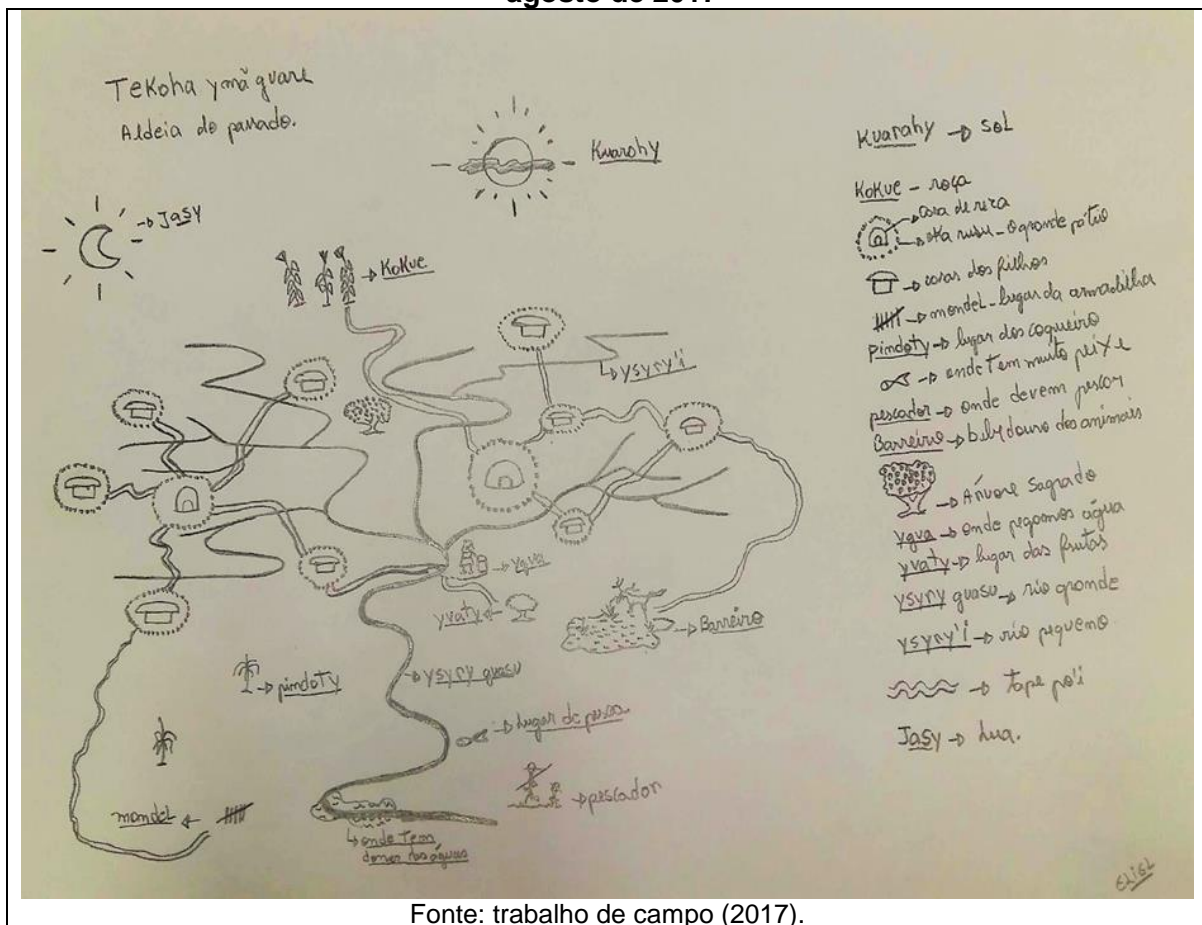 agosto de 2017
Tekoha ymã guare
Aldeia do passado.
Kuarahy
Jasy
Kokue
ysyry'i
ygua
yvaty
Barreiro
pindoty
ysyry guasu
lugar de pesca
pescador
mondel
onde tem
donos das águas
Kuarahy → sol
Kokue - roça
casa de reza
oka rusu - o grande pátio
casas dos filhos
mondel - lugar da armadilha
pindoty → lugar dos coqueiro
→ onde tem muito peixe
pescador → onde devem pescar
Barreiro → bebedouro dos animais
→ Árvore Sagrado
ygua → onde pegamos água
yvaty → lugar das frutas
ysyry guasu → rio grande
ysyry'i → rio pequeno
→ tape po'i
Jasy → lua.
ELIEL
Fonte: trabalho de campo (2017).